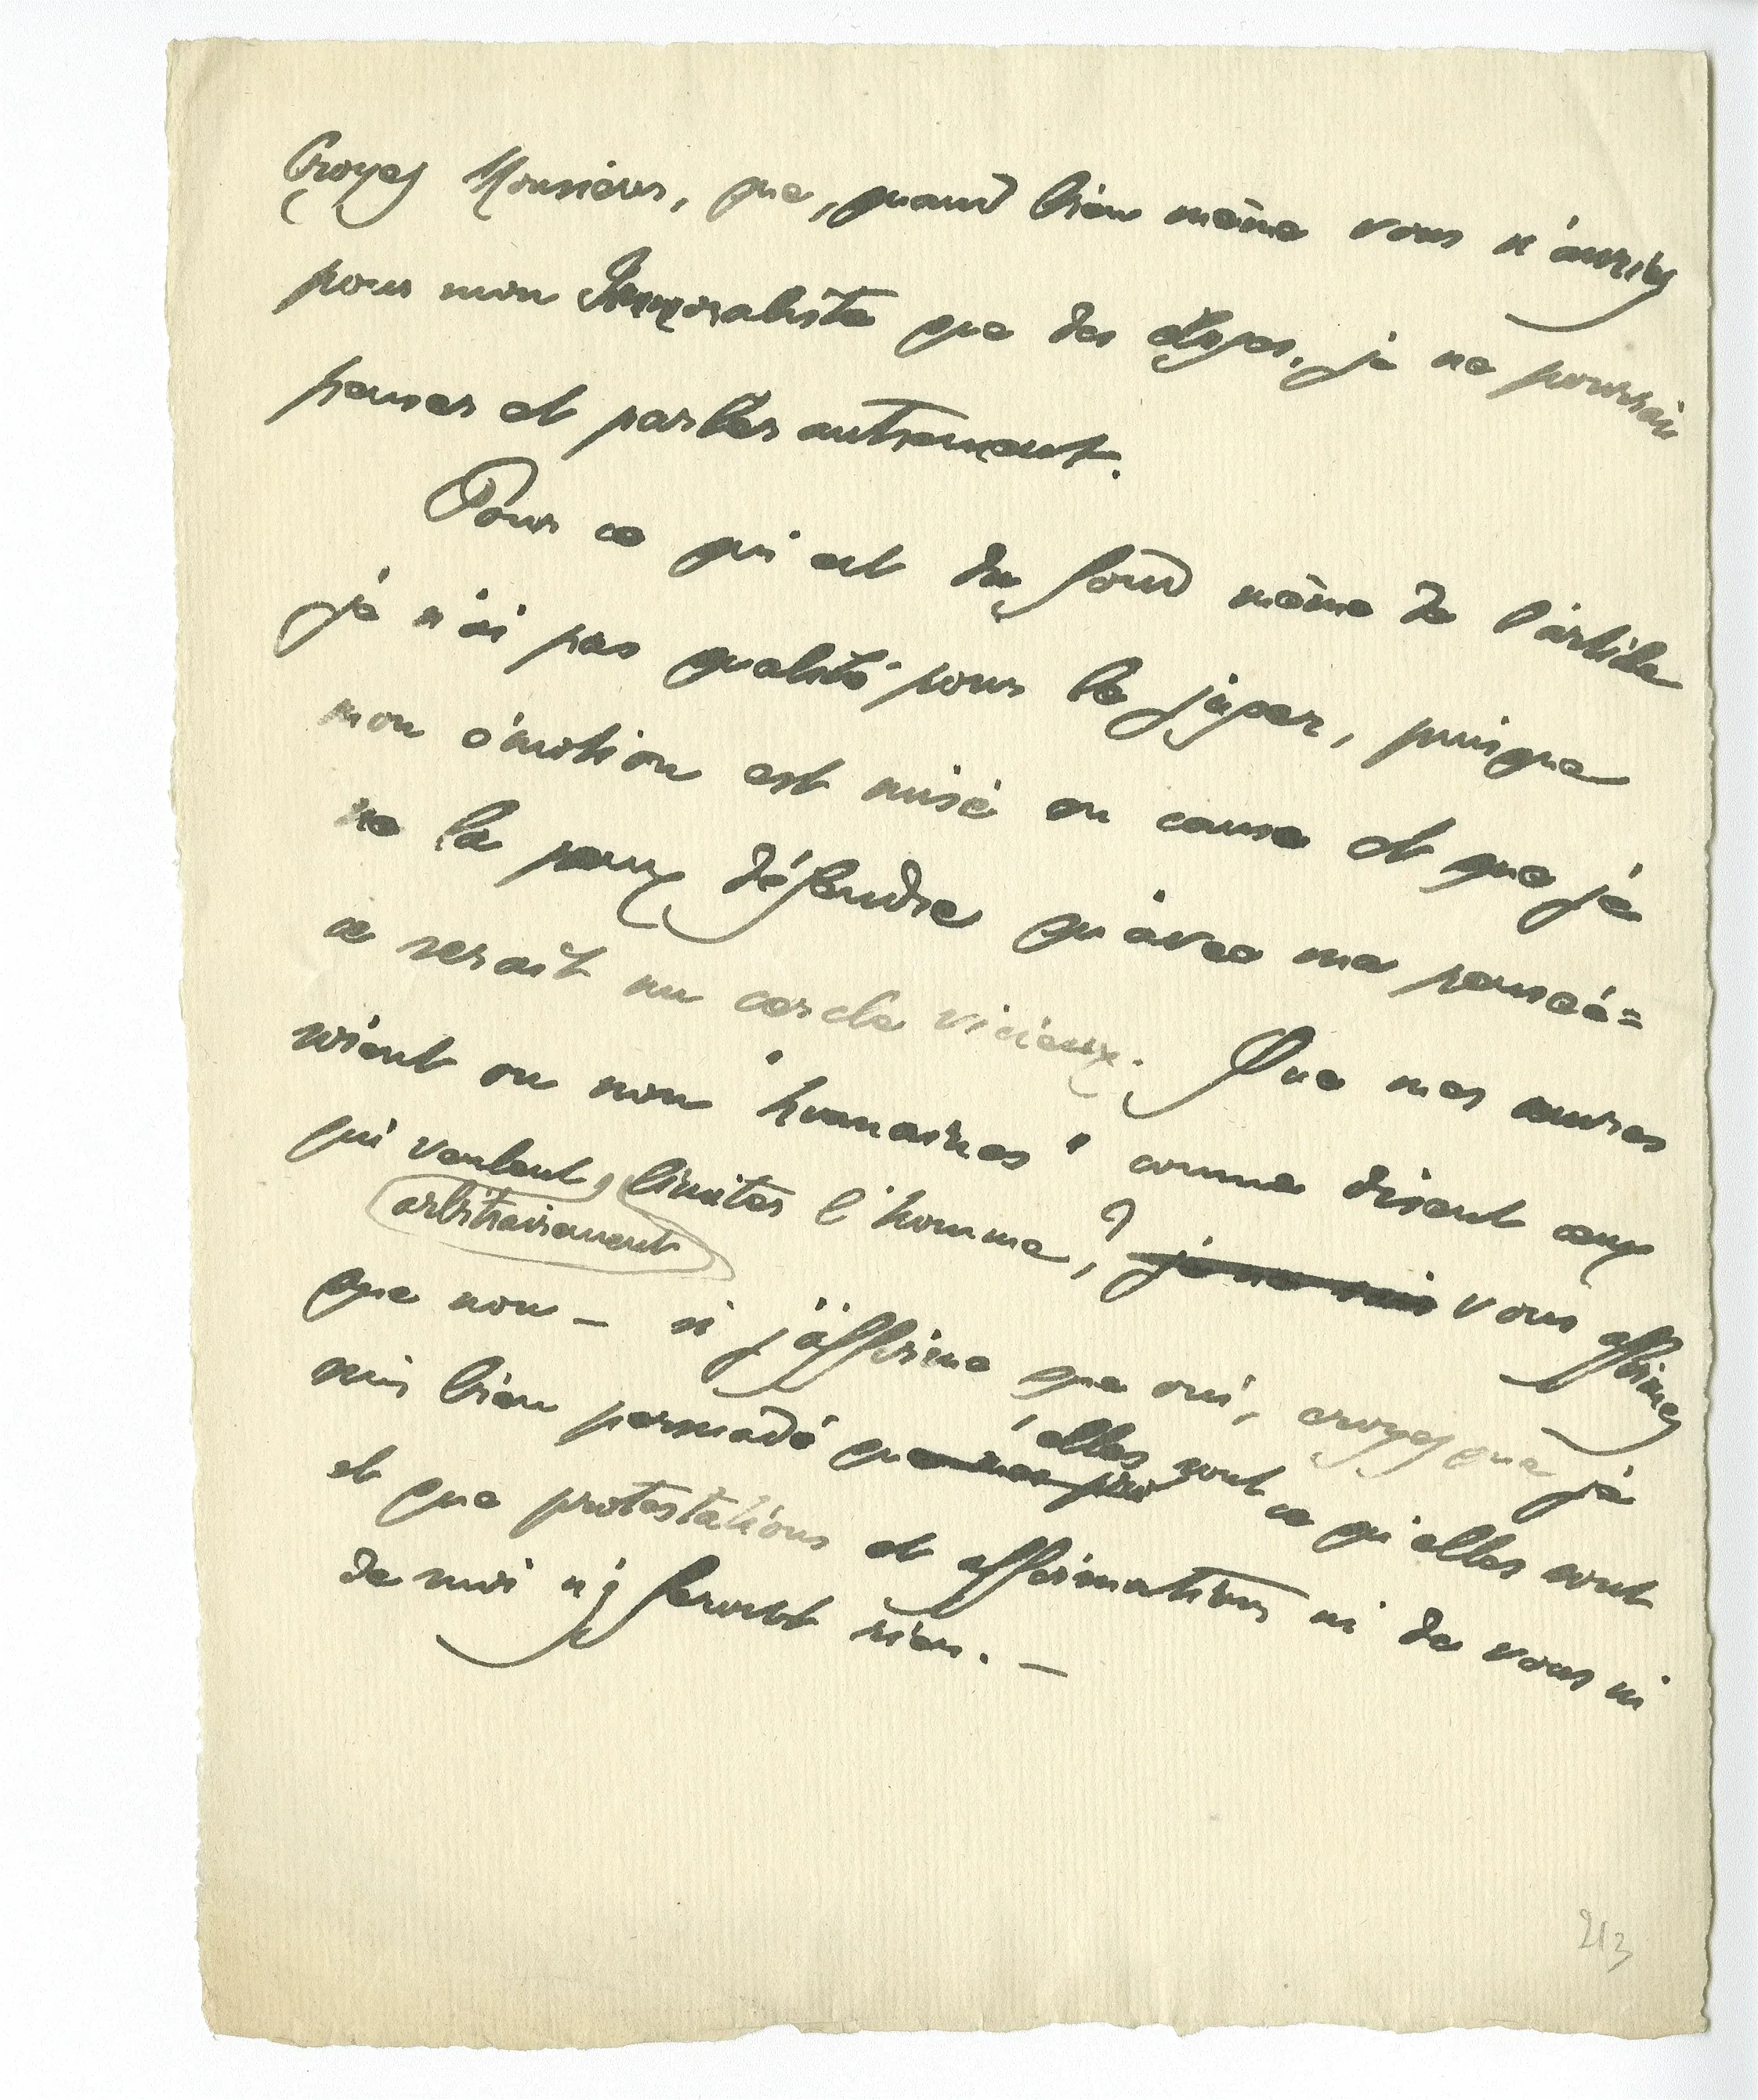 Croyez Monsieur, que, quand bien même vous n'auriez
pour mon Immoraliste que des éloges, je ne pourrais
penser et parler autrement.
Pour ce qui est du fond même de l'article
je n'ai pas qualité pour le juger, puisque
mon émotion est mise en cause et que je
ne la peux défendre qu'avec ma pensée =
ce serait un cercle vicieux. Que mes œuvres
soient ou non "humaines" comme disent ceux
qui veulent, limiter l'homme, ? je ne sais vous affirmez
arbitrairement
que non – si j'affirme que oui, croyez que je
suis bien persuadé que elles sont ce qu'elles sont
et que protestations et affirmations ni de vous ni
de moi n'y feront rien. –
213